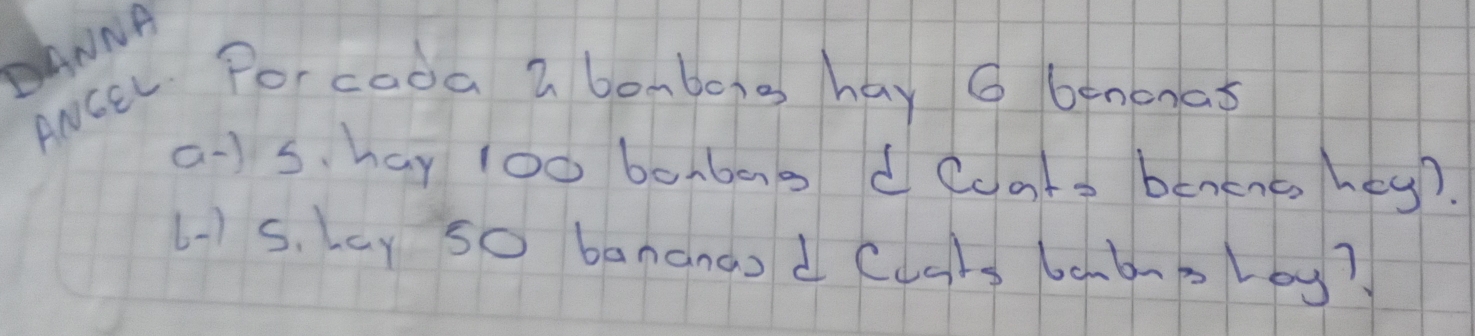 DANNA
ANGEL.
Por cada 2 bombones hay 6 bananas
a-) Si hay 100 bonbons ¿ Cuats bananas hay?.
b-) Si hay 50 bananas ¿ Cuats bonbons hay?.